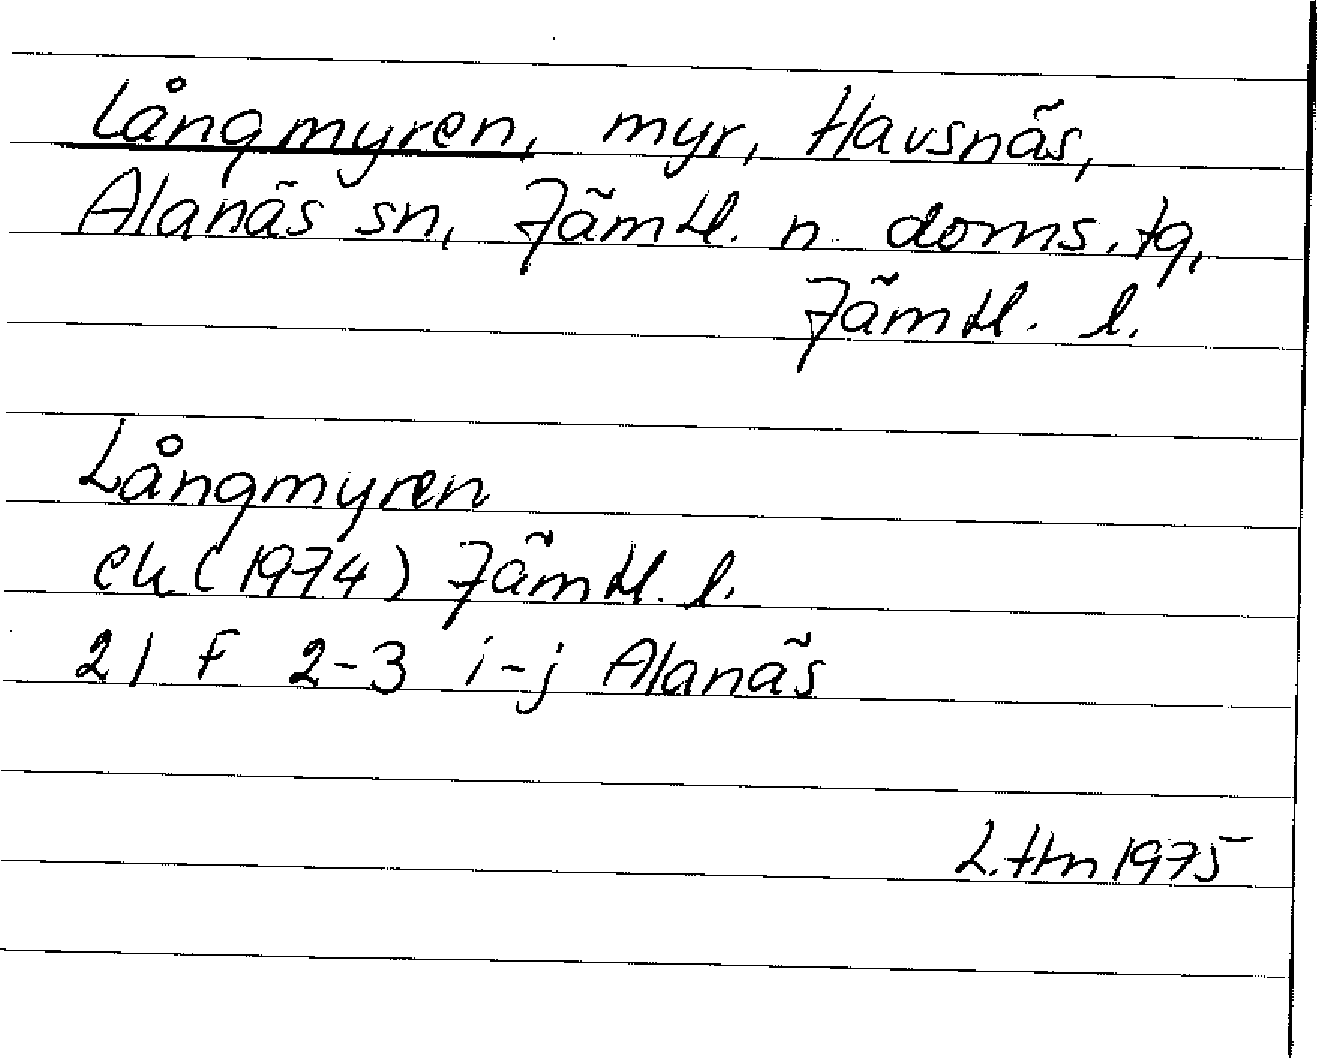 Långmyren, myr, Havsnäs,
Alanäs sn, Jämtl. n. doms. tg,
Jämtl. l.
Långmyren
ek (1974) Jämtl. l.
21 F 2-3 i-j Alanäs
L. Hm 1975